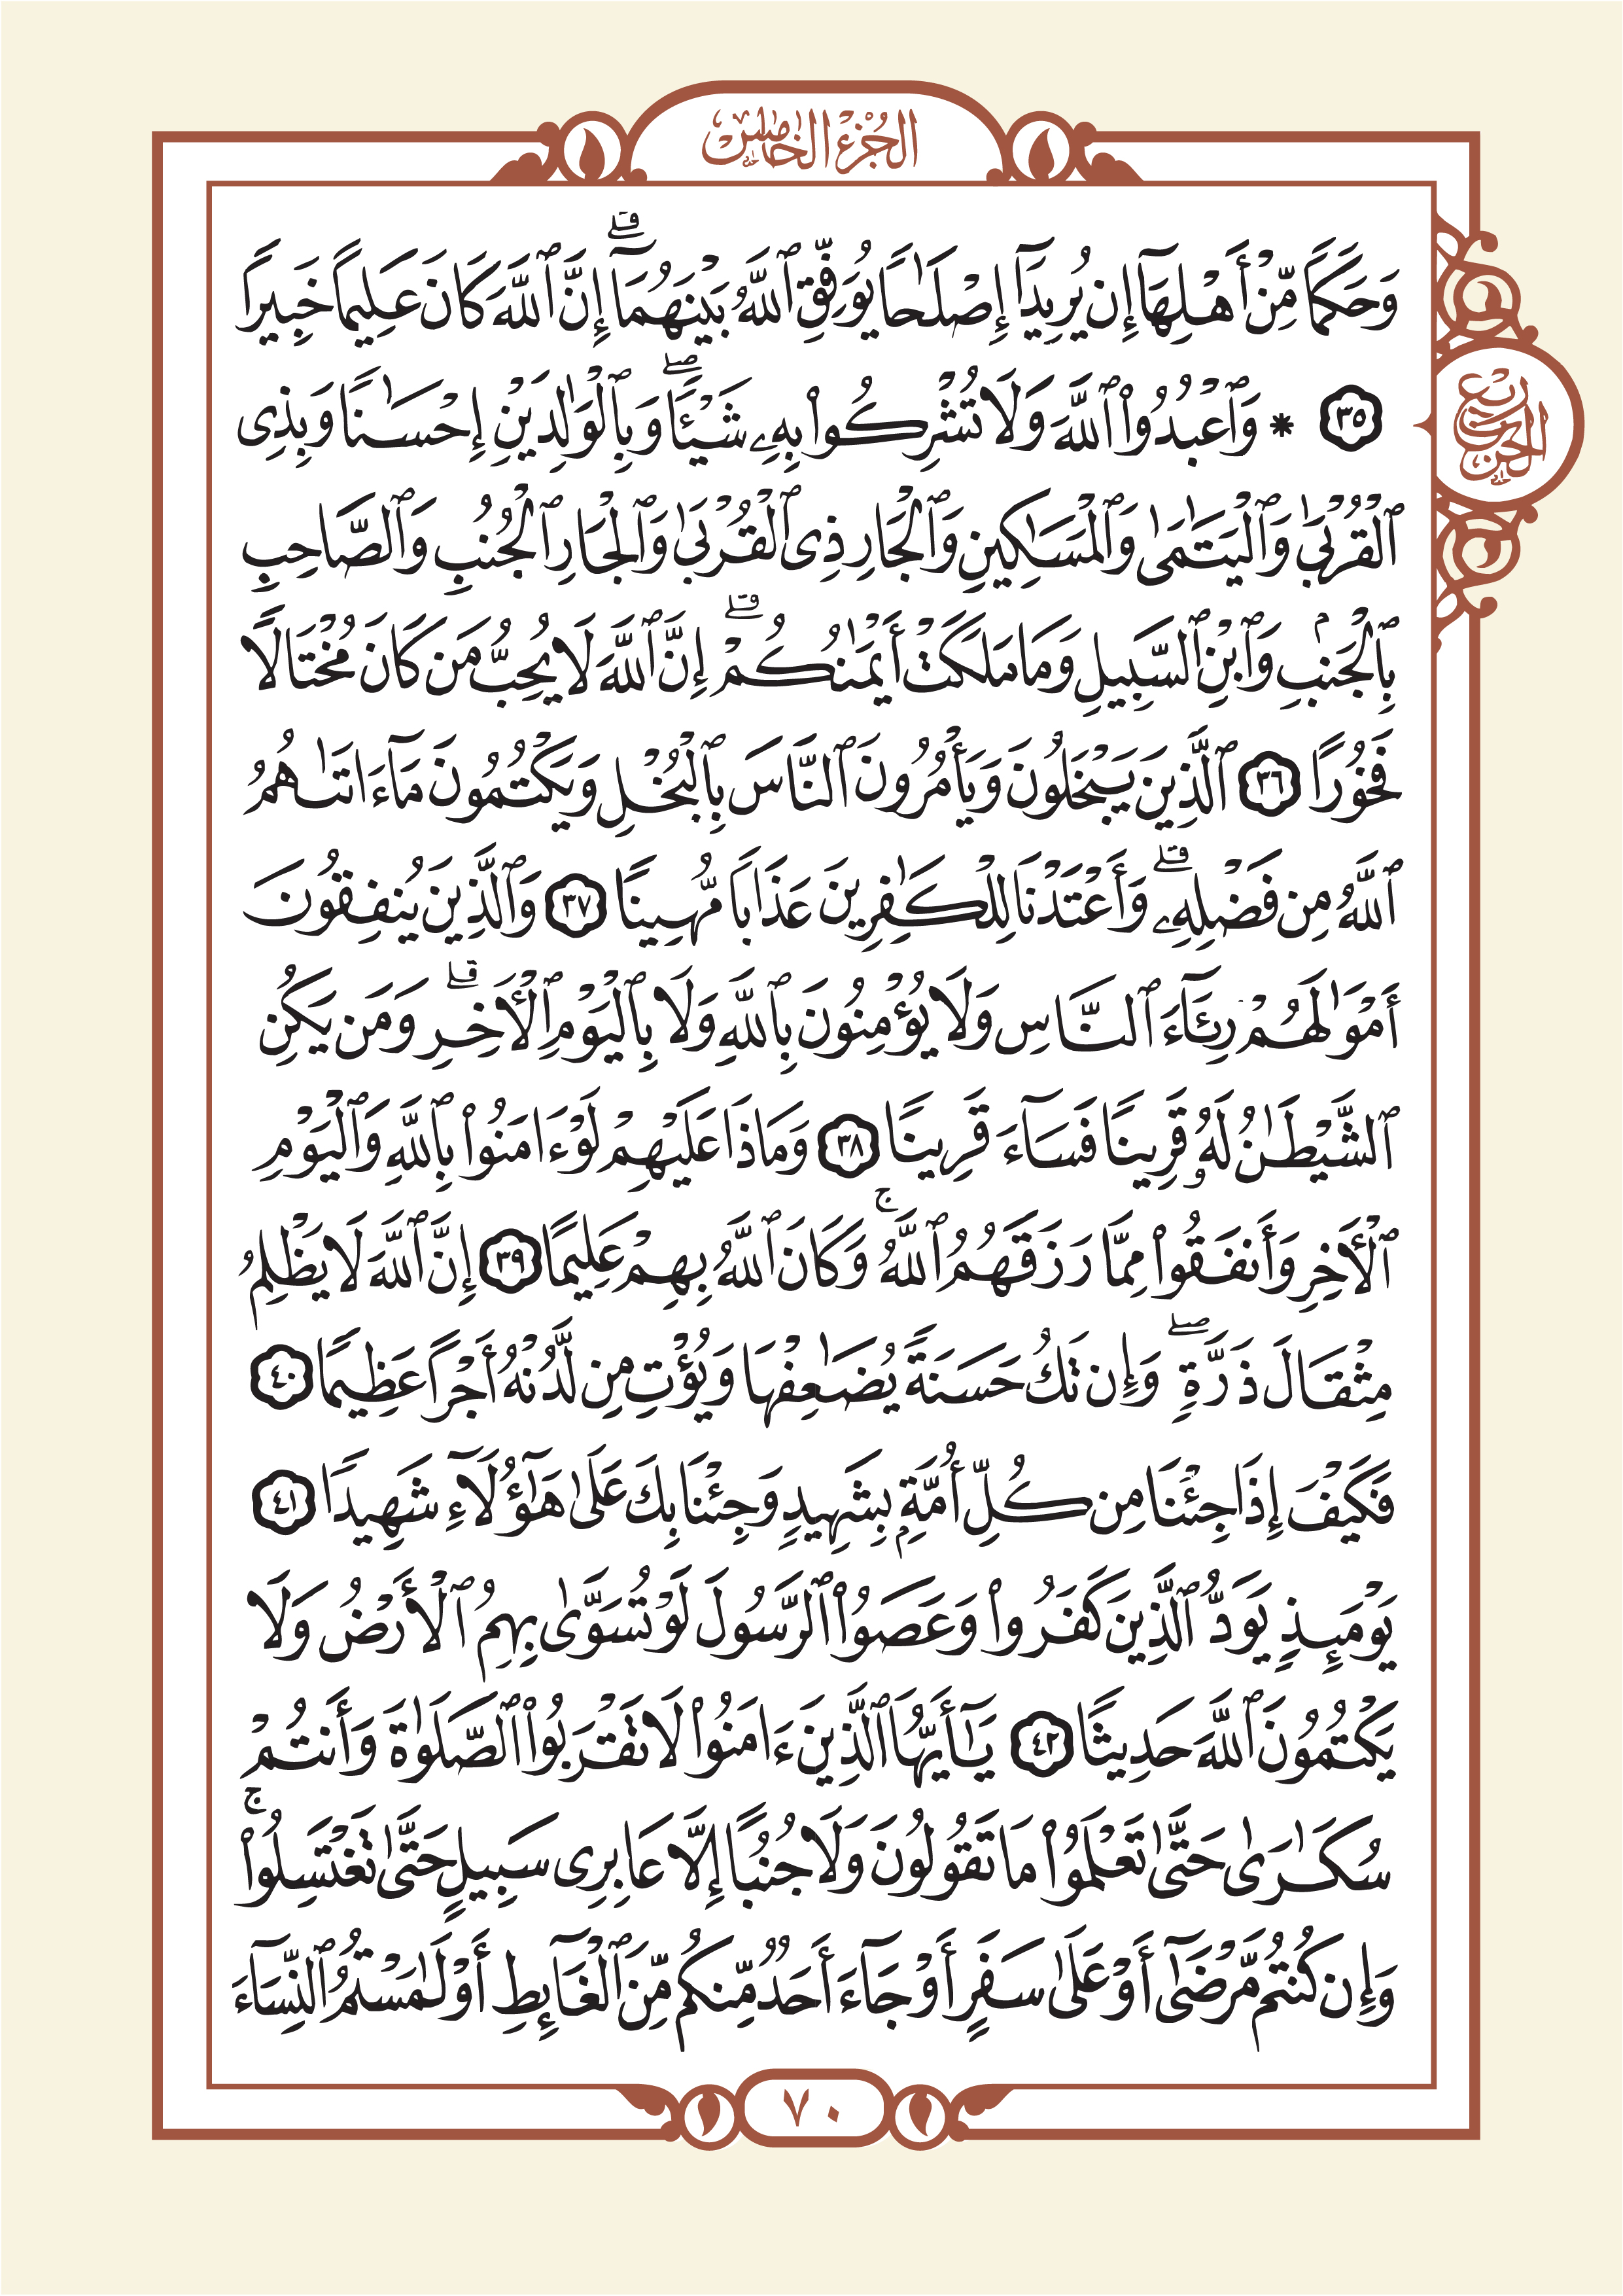 الجزء الخامس
وَحَكَمًا مِّنْ أَهْلِهَآ إِن يُرِيدَآ إِصْلَٰحًا يُوَفِّقِ ٱللَّهُ بَيْنَهُمَآ ۗ إِنَّ ٱللَّهَ كَانَ عَلِيمًا خَبِيرًا
٣٥ * وَٱعْبُدُوا۟ ٱللَّهَ وَلَا تُشْرِكُوا۟ بِهِۦ شَيْـًٔا ۖ وَبِٱلْوَٰلِدَيْنِ إِحْسَـٰنًا وَبِذِى
ربع الحزب
ٱلْقُرْبَىٰ وَٱلْيَتَـٰمَىٰ وَٱلْمَسَـٰكِينِ وَٱلْجَارِ ذِى ٱلْقُرْبَىٰ وَٱلْجَارِ ٱلْجُنُبِ وَٱلصَّاحِبِ
بِٱلْجَنۢبِ وَٱبْنِ ٱلسَّبِيلِ وَمَا مَلَكَتْ أَيْمَـٰنُكُمْ ۗ إِنَّ ٱللَّهَ لَا يُحِبُّ مَن كَانَ مُخْتَالًا
فَخُورًا ٣٦ ٱلَّذِينَ يَبْخَلُونَ وَيَأْمُرُونَ ٱلنَّاسَ بِٱلْبُخْلِ وَيَكْتُمُونَ مَآ ءَاتَىٰهُمُ
ٱللَّهُ مِن فَضْلِهِۦ ۗ وَأَعْتَدْنَا لِلْكَـٰفِرِينَ عَذَابًا مُّهِينًا ٣٧ وَٱلَّذِينَ يُنفِقُونَ
أَمْوَٰلَهُمْ رِئَآءَ ٱلنَّاسِ وَلَا يُؤْمِنُونَ بِٱللَّهِ وَلَا بِٱلْيَوْمِ ٱلْـَٔاخِرِ ۗ وَمَن يَكُنِ
ٱلشَّيْطَـٰنُ لَهُۥ قَرِينًا فَسَآءَ قَرِينًا ٣٨ وَمَاذَا عَلَيْهِمْ لَوْ ءَامَنُوا۟ بِٱللَّهِ وَٱلْيَوْمِ
ٱلْـَٔاخِرِ وَأَنفَقُوا۟ مِمَّا رَزَقَهُمُ ٱللَّهُ ۚ وَكَانَ ٱللَّهُ بِهِمْ عَلِيمًا ٣٩ إِنَّ ٱللَّهَ لَا يَظْلِمُ
مِثْقَالَ ذَرَّةٍ ۖ وَإِن تَكُ حَسَنَةً يُضَـٰعِفْهَا وَيُؤْتِ مِن لَّدُنْهُ أَجْرًا عَظِيمًا ٤٠
فَكَيْفَ إِذَا جِئْنَا مِن كُلِّ أُمَّةٍۭ بِشَهِيدٍ وَجِئْنَا بِكَ عَلَىٰ هَـٰٓؤُلَآءِ شَهِيدًا ٤١
يَوْمَئِذٍ يَوَدُّ ٱلَّذِينَ كَفَرُوا۟ وَعَصَوُا۟ ٱلرَّسُولَ لَوْ تُسَوَّىٰ بِهِمُ ٱلْأَرْضُ وَلَا
يَكْتُمُونَ ٱللَّهَ حَدِيثًا ٤٢ يَـٰٓأَيُّهَا ٱلَّذِينَ ءَامَنُوا۟ لَا تَقْرَبُوا۟ ٱلصَّلَوٰةَ وَأَنتُمْ
سُكَـٰرَىٰ حَتَّىٰ تَعْلَمُوا۟ مَا تَقُولُونَ وَلَا جُنُبًا إِلَّا عَابِرِى سَبِيلٍ حَتَّىٰ تَغْتَسِلُوا۟ ۚ
وَإِن كُنتُم مَّرْضَىٰٓ أَوْ عَلَىٰ سَفَرٍ أَوْ جَآءَ أَحَدٌ مِّنكُم مِّنَ ٱلْغَآئِطِ أَوْ لَـٰمَسْتُمُ ٱلنِّسَآءَ
٧٠